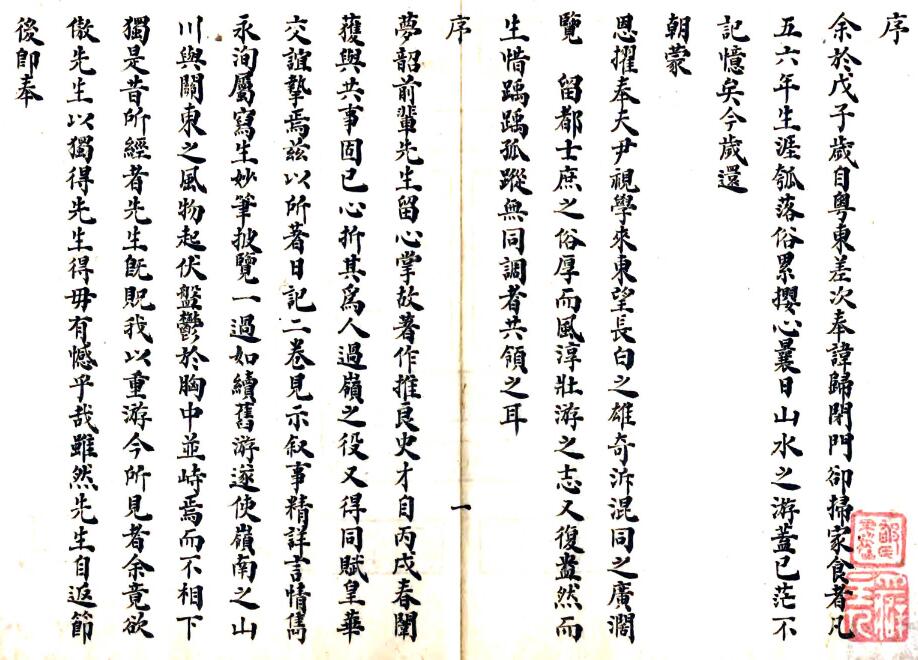 序
余於戊子歲自粵東差次奉諱歸閉門卻掃家食者凡
五六年生涯瓠落俗累攖心曩日山水之游蓋已茫不
記憶矣今歲還
朝蒙
恩擢奉天尹視學來東望長白之雄奇泝混同之廣濶
覽 留都士庶之俗厚而風淳壯游之志又復盎然而
生惜踽踽孤蹤無同調者共領之耳
序
一
夢韶前輩先生留心掌故著作推良史才自丙戌春闈
獲與共事固已心折其為人過嶺之役又得同賦皇華
交誼摯焉茲以所著日記二卷見示叙事精詳言情雋
永洵屬寫生妙筆披覽一過如續舊游遂使嶺南之山
川與關東之風物起伏盤鬱於胸中並峙焉而不相下
獨是昔所經者先生既貺我以重游今所見者余竟欲
傲先生以獨得先生得毋有憾乎哉雖然先生自返節
後即奉